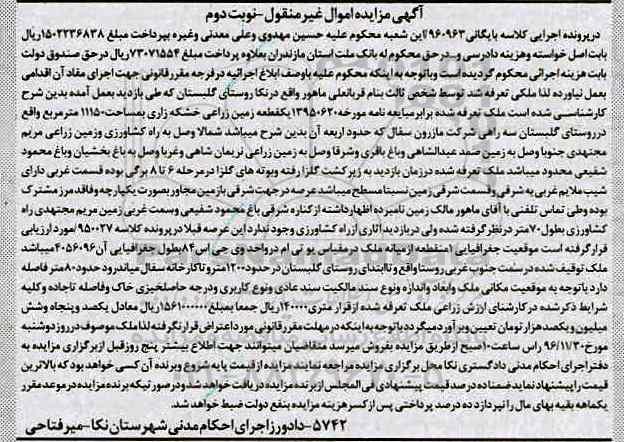 آگهی مزایده اموال غیر منقول - نوبت دوم
در پرونده اجرایی کلاسه بایگانی ۹۶۰۹۶۳ این شعبه محکوم علیه حسین مهدوی و علی معدنی و غیره بپرداخت مبلغ ۱۵۰۲۲۳۶۸۳۸ ریال
بابت اصل خواسته و هزینه دادرسی و... در حق محکوم له بانک ملت استان مازندران بعلاوه پرداخت مبلغ ۷۳۰۷۱۵۵۴ ریال در حق صندوق دولت
بابت هزینه اجرائی محکوم گردیده است و باتوجه به اینکه محکوم علیه باوصف ابلاغ اجرائیه در فرجه مقرر قانونی جهت اجرای مفاد آن اقدامی
بعمل نیاورده لذا ملکی تعرفه شد توسط شخص ثالث بنام قربانعلی ماهور واقع در نکا روستای گلبستان که طی بازدید بعمل آمده بدین شرح
کارشناسی شده است ملک تعرفه شده برابر مبایعه نامه مورخه ۱۳۹۵۰۶۲۰ یکقطعه زمین زراعی خشکه زاری بمساحت ۱۱۱۵۰ متر مربع واقع
در روستای گلبستان سه راهی شرکت مازرون سفال که حدود اربعه آن بدین شرح میباشد شمالا وصل به راه کشاورزی و زمین زراعی مریم
مجتهدی جنوبا وصل به زمین صمد عبدالشاهی و باغ باقری و شرقا وصل به زمین زراعی نریمان شاهی و غربا وصل به باغ بخشیان و باغ محمود
شفیعی محدود میباشد ملک تعرفه شده در زمان بازدید به زیر کشت کلزا رفته و بوته های کلزا در مرحله ۶ تا ۸ برگی بوده قسمت غربی دارای
شیب ملایم غربی به شرقی و قسمت شرقی زمین نسبتا مسطح میباشد عرصه در جهت شرقی با زمین مجاور بصورت یکپارچه و فاقد مرز مشترک
بوده و طی تماس تلفنی با آقای ماهور مالک زمین نامبرده اظهار داشته از کناره شرقی باغ محمود شفیعی و سمت غربی زمین مریم مجتهدی راه
کشاورزی بطول ۷۰ متر در نظر گرفته شده ولی در بازدید آثاری از راه کشاورزی وجود ندارد این عرصه قبلا در پرونده کلاسه ۹۵۰۰۲۷ مورد ارزیابی
قرار گرفته است موقعیت جغرافیایی (منقطعه از میانه ملک در مقیاس یو تی ام در واحد وی جی اس ۸۴ بطول جغرافیایی آن ۴۰۵۶۰۹۶ میباشد
ملک توقیف شده در سمت جنوب غربی روستا واقع و تا ابتدای روستای گلبستان در حدود ۱۲۰۰ متر و تا کارخانه سفال میاندرود حدود ۸۰ متر فاصله
دارد باتوجه به موقعیت مکانی ملک و ابعاد و اندازه و نوع سند مالکیت سند عادی و نوع کاربری و درجه حاصلخیزی خاک و فاصله تا جاده و کلیه
شرایط ذکر شده در کارشناسی ارزش زراعی ملک تعرفه شده از قرار متری ۱۴۰۰۰۰ ریال جمعا بمبلغ ۱۵۶۱۰۰۰۰۰۰ ریال معادل یکصد و پنجاه و شش
میلیون و یکصد هزار تومان تعیین و برآورد میگردد باتوجه به اینکه در مهلت مقرر قانونی مورد اعتراض قرار نگرفته لذا ملک موصوف در روز دوشنبه
مورخ ۹۶/۱۱/۳۰ راس ساعت ۱۰ صبح از طریق مزایده بفروش میرسد متقاضیان میتوانند جهت اطلاع بیشتر پنج روز قبل از برگزاری مزایده به
دفتر اجرای احکام مدنی دادگستری نکا محل برگزاری مزایده مراجعه نمایند مزایده از قیمت پایه شروع و برنده آن کسی خواهد بود که بالاترین
قیمت را پیشنهاد نماید ضمنا ده درصد قیمت پیشنهادی فی المجلس از برنده مزایده دریافت خواهد شد و در صورتیکه برنده مزایده در موعد مقرر
یکماهه بقیه بهای مال را نپردازد ده درصد پرداختی پس از کسر هزینه مزایده بنفع دولت ضبط خواهد شد.
۵۷۴۲- دادورز اجرای احکام مدنی شهرستان نکا - میرفتاحی